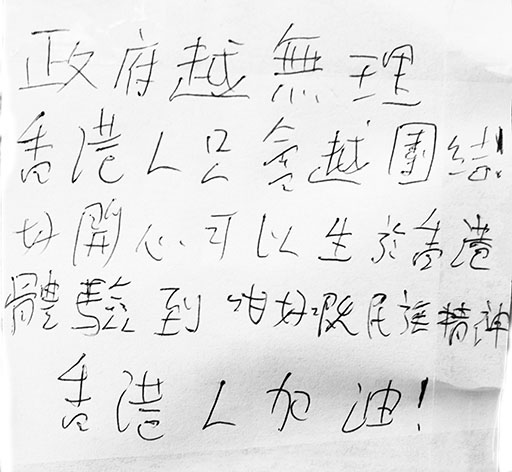 政府越無理
香港人只會越團結!
好開心可以生於香港
體驗到咁好嘅民族精神
香港人加油!